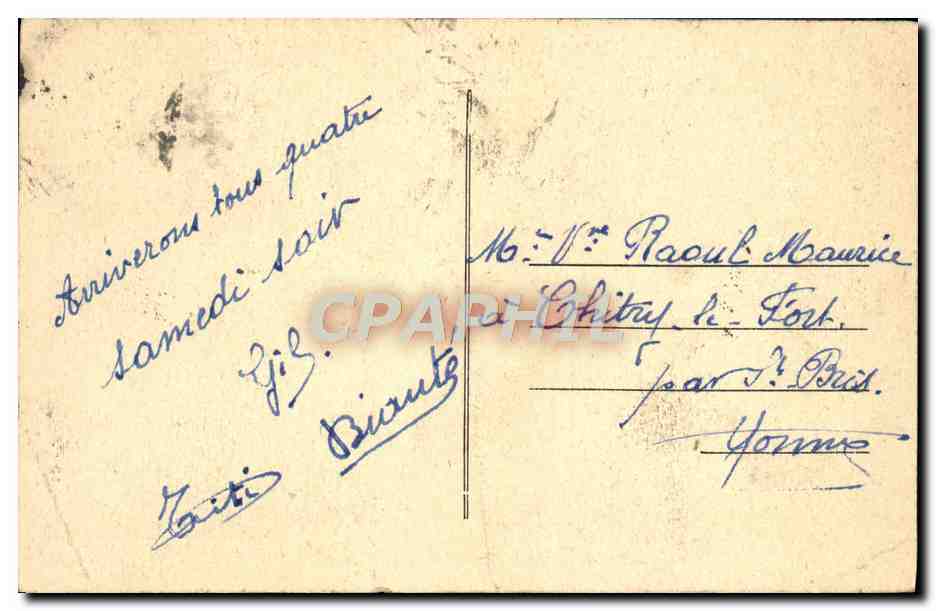 Arriverons tous quatre
samedi soir
Gil.
Titi
M.me Vve Raoul Maurice
à Chitry-le-Fort.
par St. Bris.
Yonne
CPAPHIL